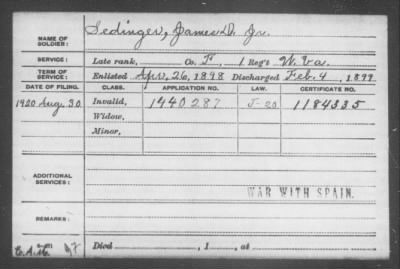 NAME OF SOLDIER: Sedinger, James D. Jr.
SERVICE: Late rank, Co. F, 1 Reg't W. Va.
TERM OF SERVICE: Enlisted Apr. 26, 1898 Discharged Feb. 4, 1899
DATE OF FILING. CLASS. APPLICATION NO. LAW. CERTIFICATE NO.
1920 Aug. 30 Invalid, 1440287 J-20 1184335
Widow,
Minor,
ADDITIONAL SERVICES:
WAR WITH SPAIN.
REMARKS:
Died , 1 , at